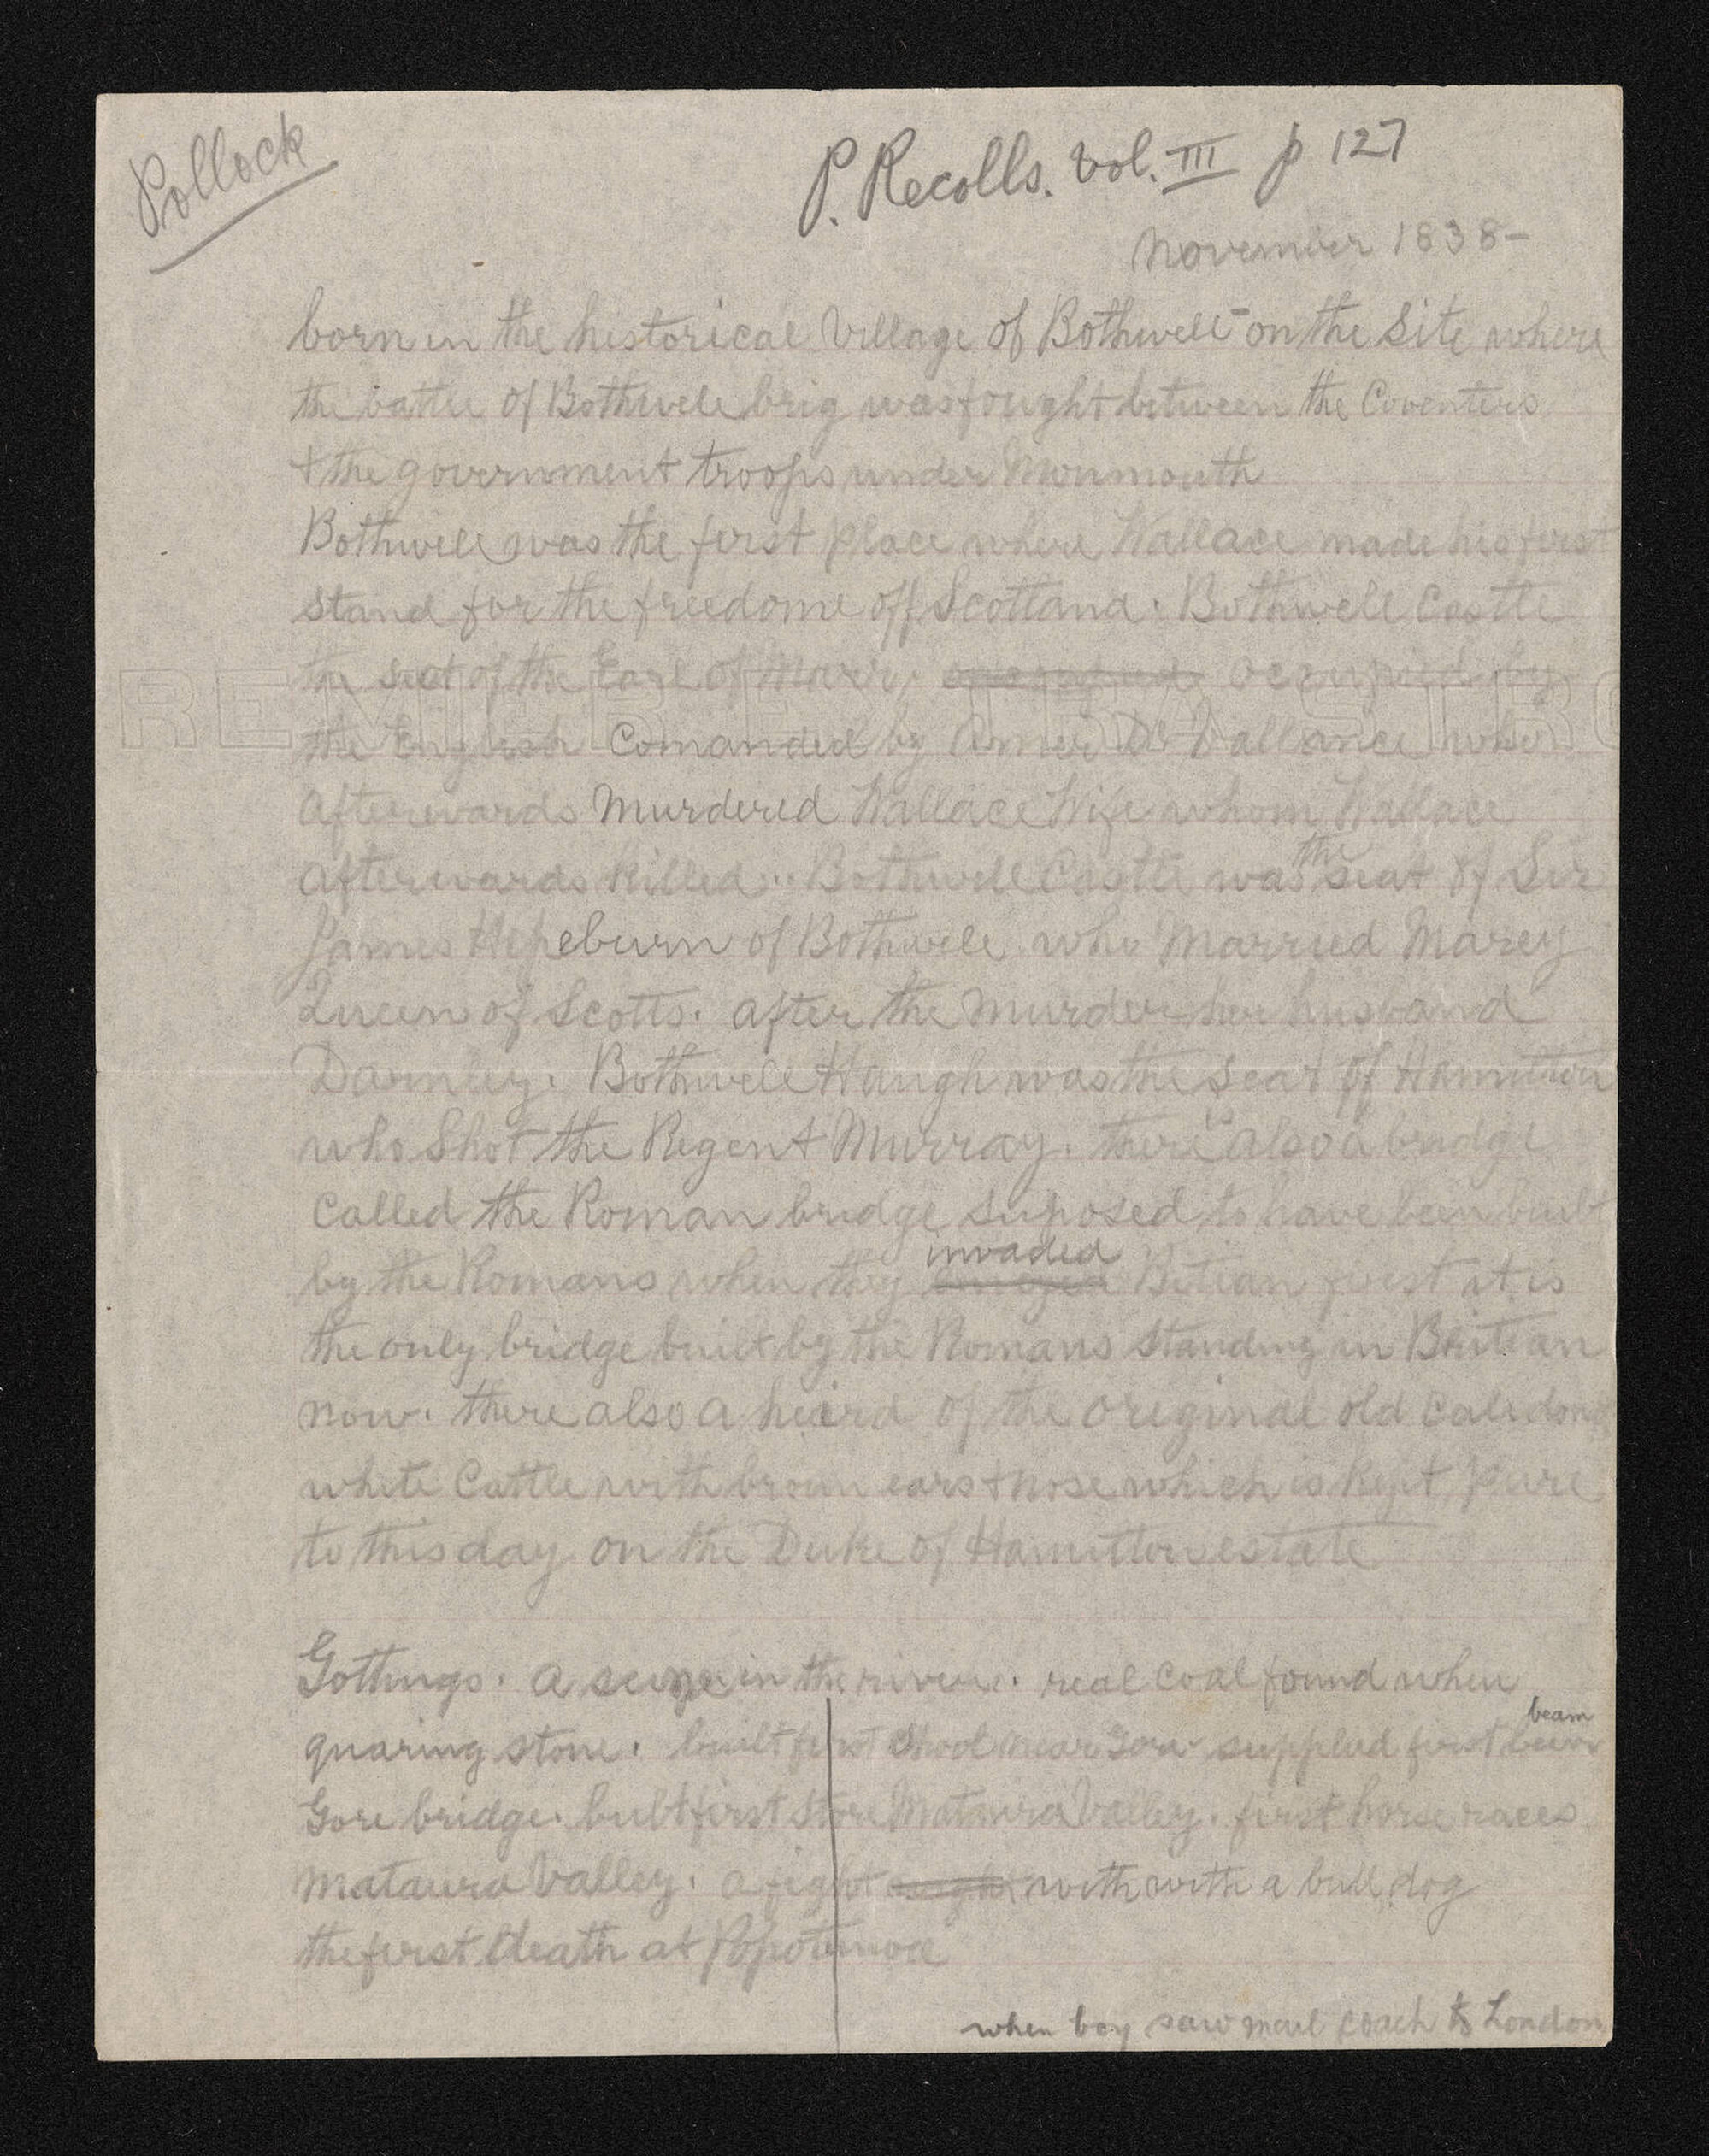 Pollock
P. Recolls. Vol. III p 127
November 1838-
born in the historical Village of Bothwell - on the Site where
the battle of Bothwell brig was fought between the Coventers
+ the government troops under Monmouth
Bothwell was the first place where Wallace made his first
stand for the freedome off Scotland. Bothwell Castle
the seat of the Earl of Marr, occupied by
the English Comanded by Amer De Vallance who
afterwards Murdered Wallace Wife whom Wallace
afterwards killed... Bothwell Castle was the seat of Sir
James Hepeburn of Bothwell who Married Marey
Queen of Scotts. after the Murder her husband
Darnley. Bothwell Haugh was the seat of Hamilton
who Shot the Regent Murray. there is also a bridge
Called the Roman bridge suposed to have been built
by the Romans when they invaded Britian first it is
the only bridge built by the Romans standing in Britian
now. there also a heard of the original old
white Cattle with brown ears + nose which is kept pure
to this day on the Duke of Hamilton estate
Gottings. a in the river. real coal found when
quaring stone. built first near Gore supplied first beam
Gore bridge. built first store Mataura Valley. first horse races
Mataura Valley. a fight with with a bull dog
the first death at
when boy saw mail coach to London
PREMIER EXTRA STRO